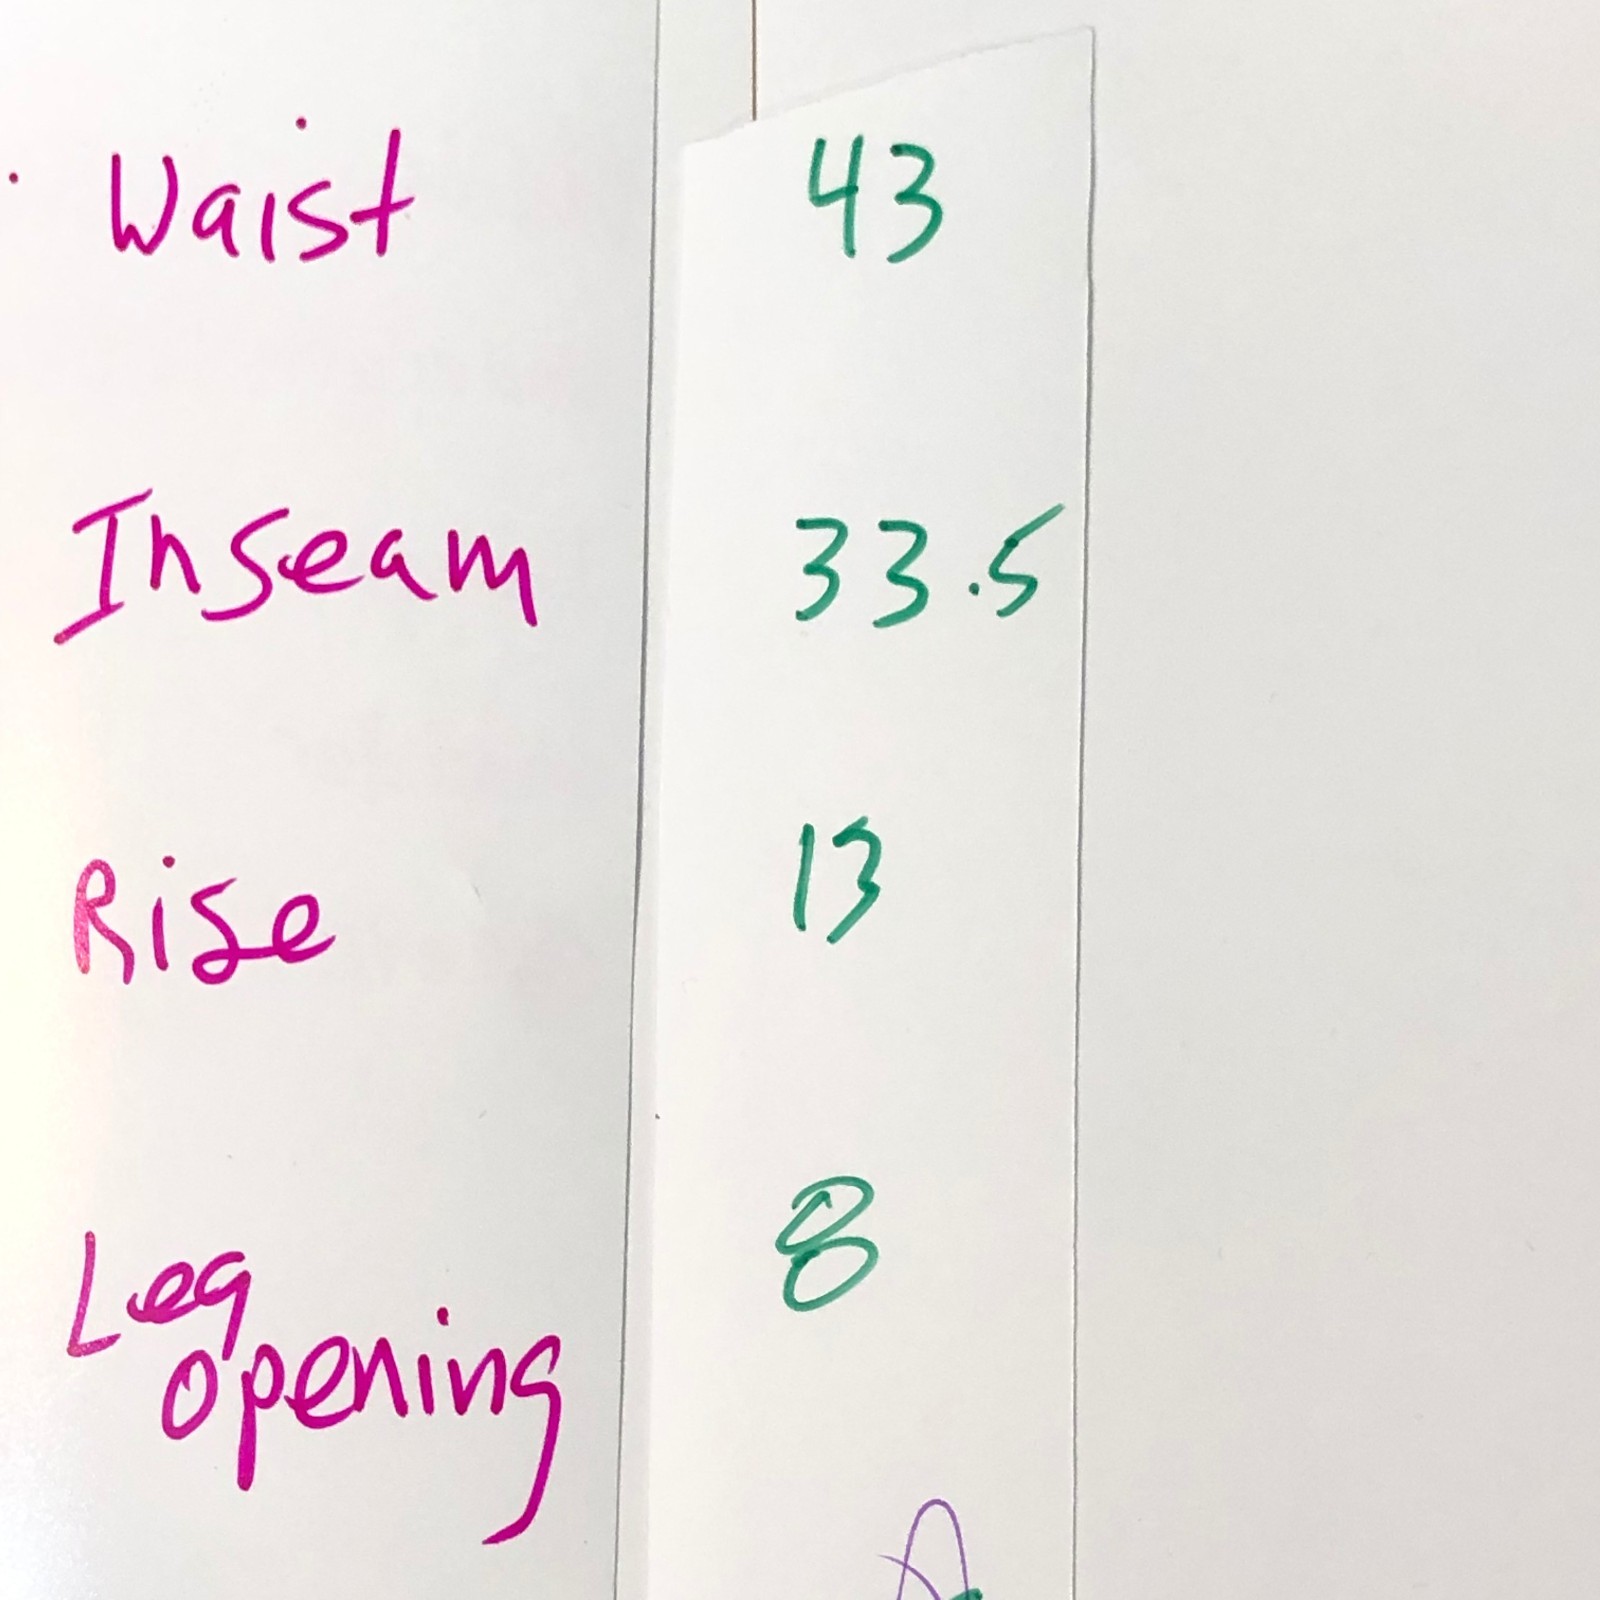 Waist 43
Inseam 33.5
Rise 13
Leg 8
opening